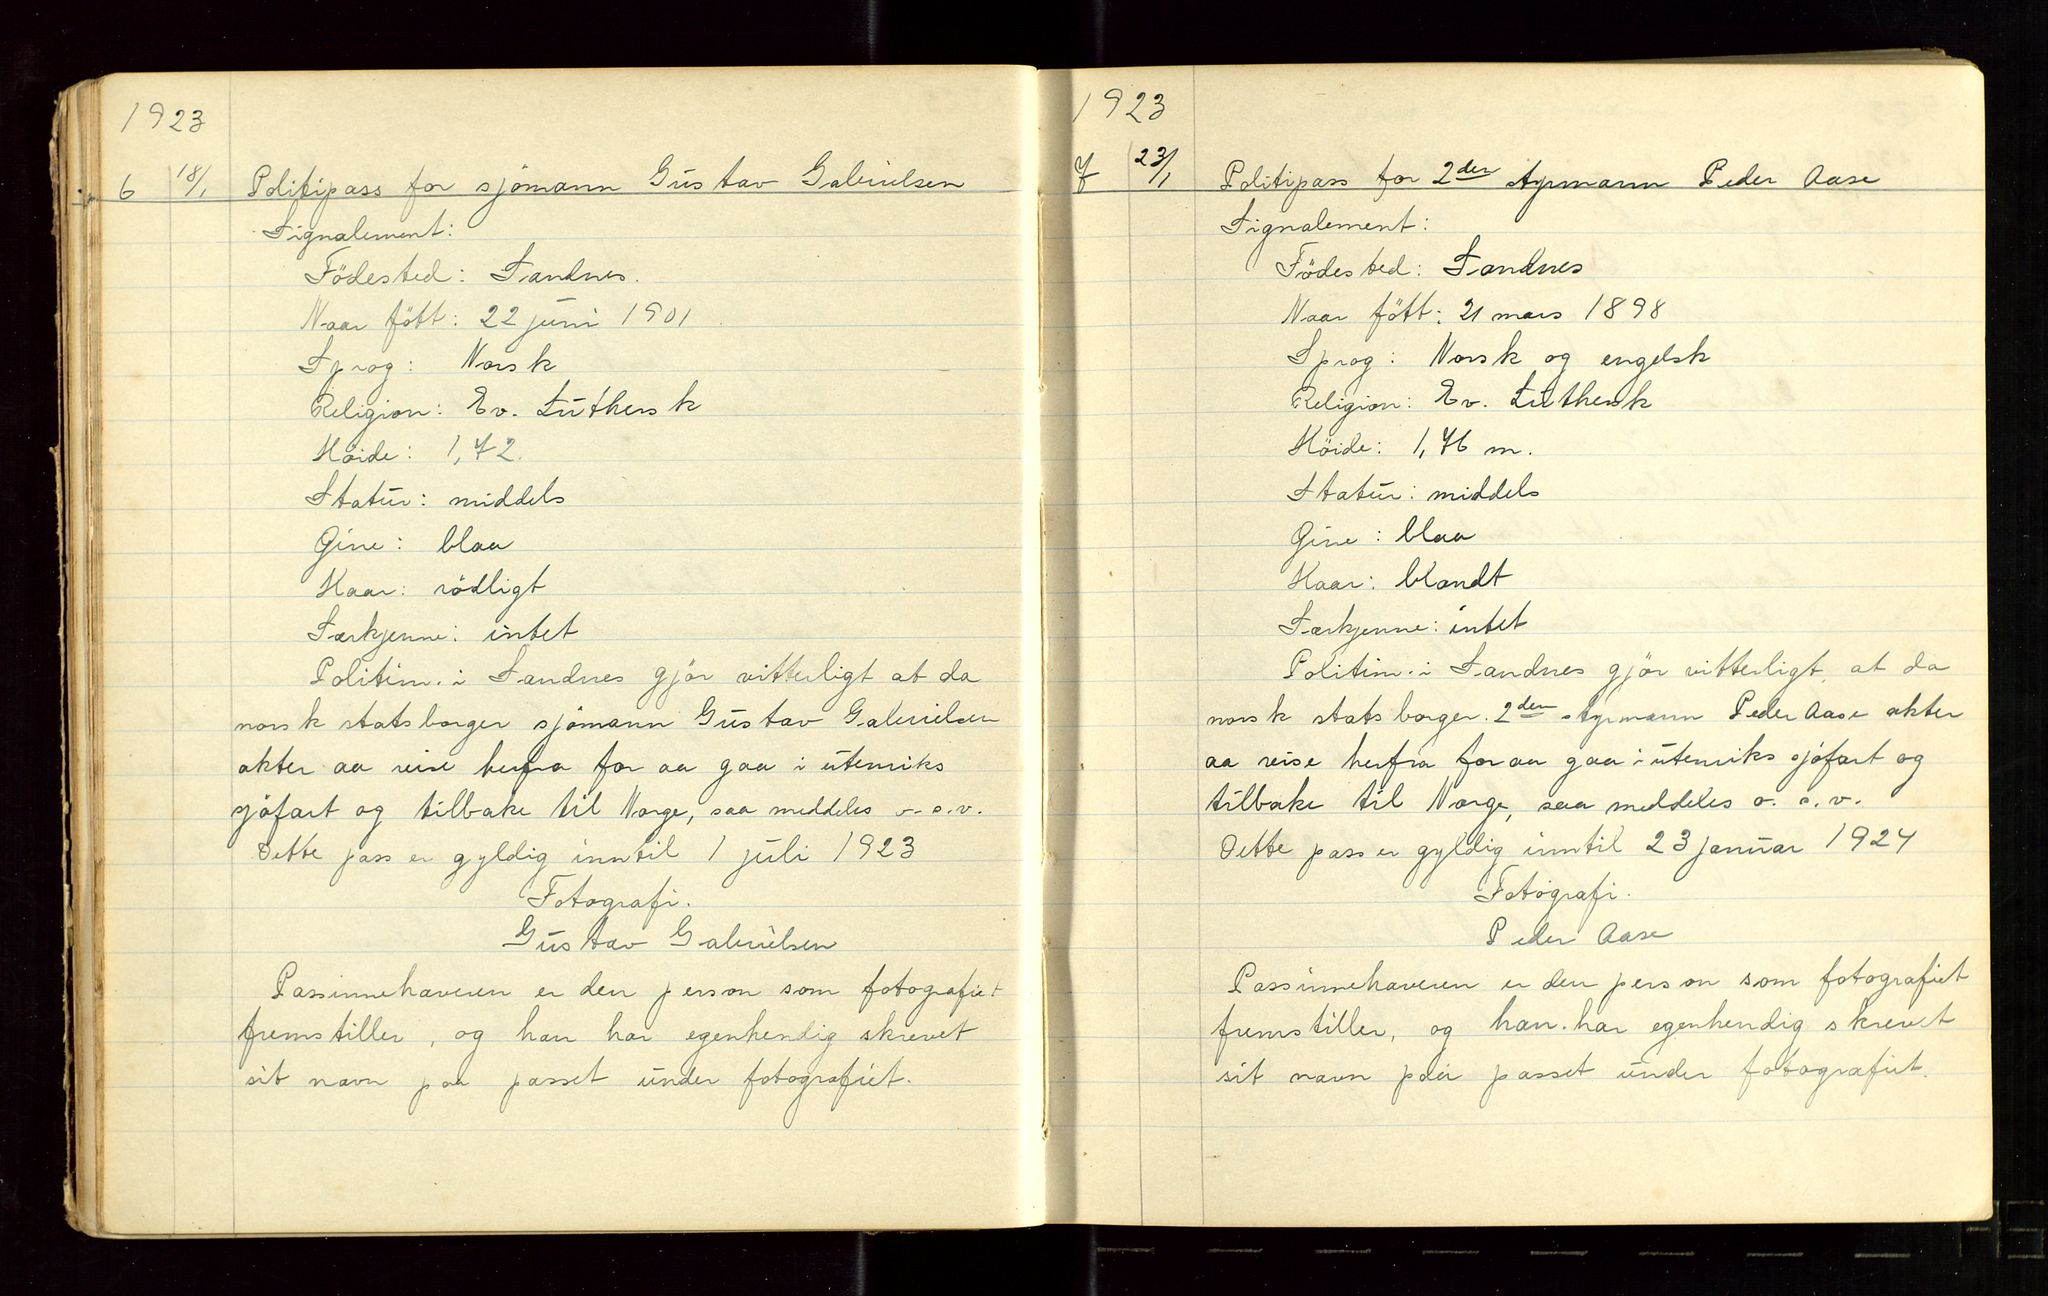 1923
6 18/1 Politipass for sjömann Gustav Gabrielsen
Signalement:
Födested: Sandnes.
Naar fött: 22 juni 1901
Sprog: Norsk
Religion: Ev. Luthersk
Höide: 1,72.
Statur: middels
Öine: blaa
Haar: rödligt
Særkjenne: intet
Politim. i Sandnes gjör vitterligt at da
norsk statsborger sjömann Gustav Gabrielsen
akter aa reise herfra for aa gaa i utenriks
sjöfart og tilbake til Norge, saa meddeles o.s.v.
Dette pass er gyldig inntil 1 juli 1923
Fotografi.
Gustav Gabrielsen
Passinnehaveren er den person som fotografiet
fremstiller, og han har egenhendig skrevet
sit navn paa passet under fotografiet.
1923
7 23/1 Politipass for 2den styrmann Peder Aase
Signalement:
Födested: Sandnes
Naar fött: 21 mars 1898
Sprog: Norsk og engelsk
Religion: Ev. Luthersk
Höide: 1,76 m.
Statur: middels
Öine: blaa
Haar: blondt
Særkjenne: intet
Politim. i Sandnes gjör vitterligt, at da
norsk statsborger 2den styrmann Peder Aase akter
aa reise herfra for aa gaa i utenriks sjöfart og
tilbake til Norge, saa meddeles o.s.v.
Dette pass er gyldig inntil 23 januar 1924
Fotografi.
Peder Aase
Passinnehaveren er den person som fotografiet
fremstiller, og han har egenhendig skrevet
sit navn paa passet under fotografiet.